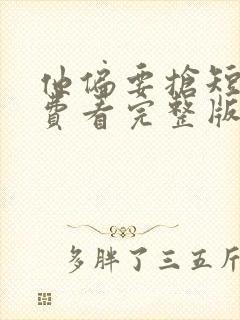 他偏要搶短
費看完整版
多胖了三五斤